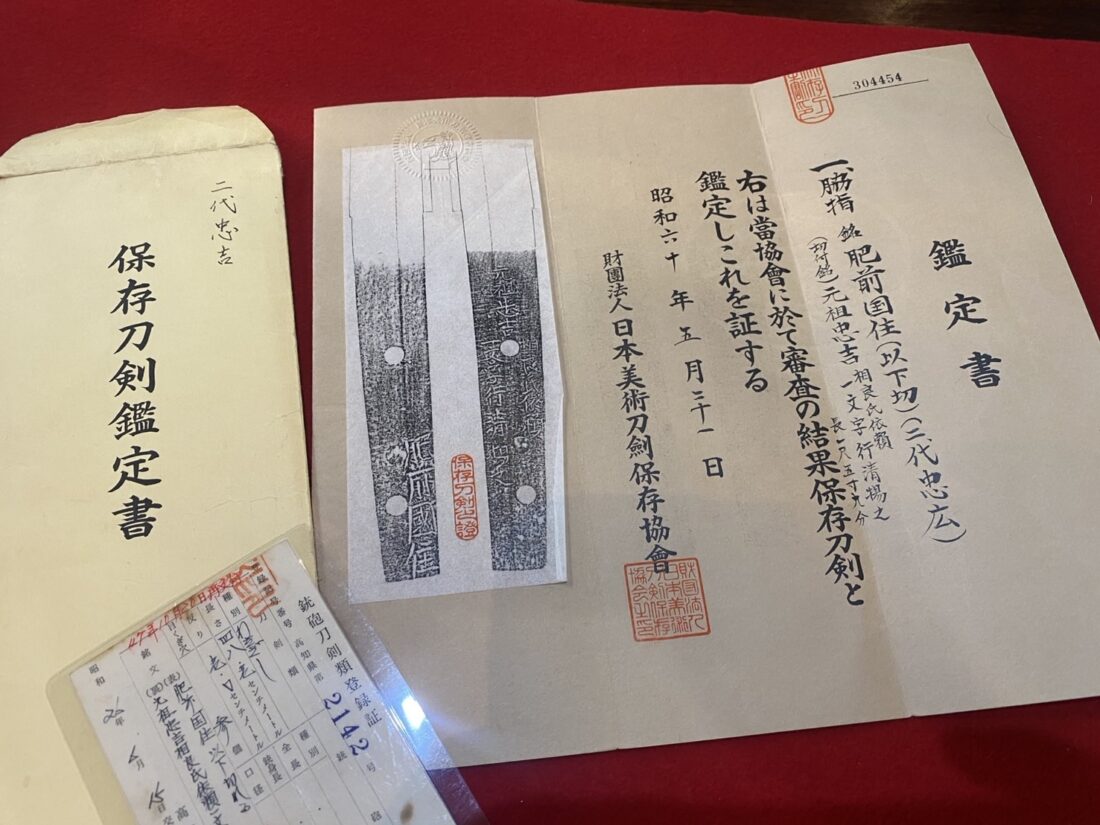 二代忠吉
保存刀剣鑑定書
304454
鑑定書
一、脇指 銘 肥前国住(以下切)(二代忠広)
(切付銘)元祖忠吉 相良氏依頼
一文字行清揚之
長一尺五寸九分
右は當協會に於て審査の結果保存刀剣と
鑑定しこれを証する
昭和六十年五月三十一日
財團法人日本美術刀劍保存協會
保存刀剣之證
財団法人日本美術刀剣保存協会之印
銃砲刀剣類登録証
番号 高知県第 2142 号
種別
長さ センチメートル
反り センチメートル
銘文 (表) 肥前国住
(裏) 元祖忠吉相良氏依頼一文
全長
銃身長
口径
昭和26年6月15日